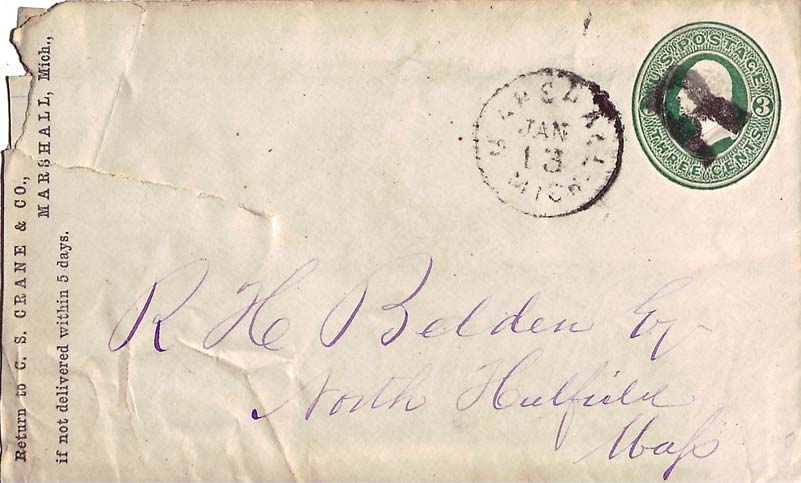 Return to C. S. CRANE & CO.,
MARSHALL, Mich.,
if not delivered within 5 days.
MARSHALL
JAN
13
MICH.
U.S. POSTAGE
3
THREE CENTS
R H Belden Esq
North Hatfield
Mass